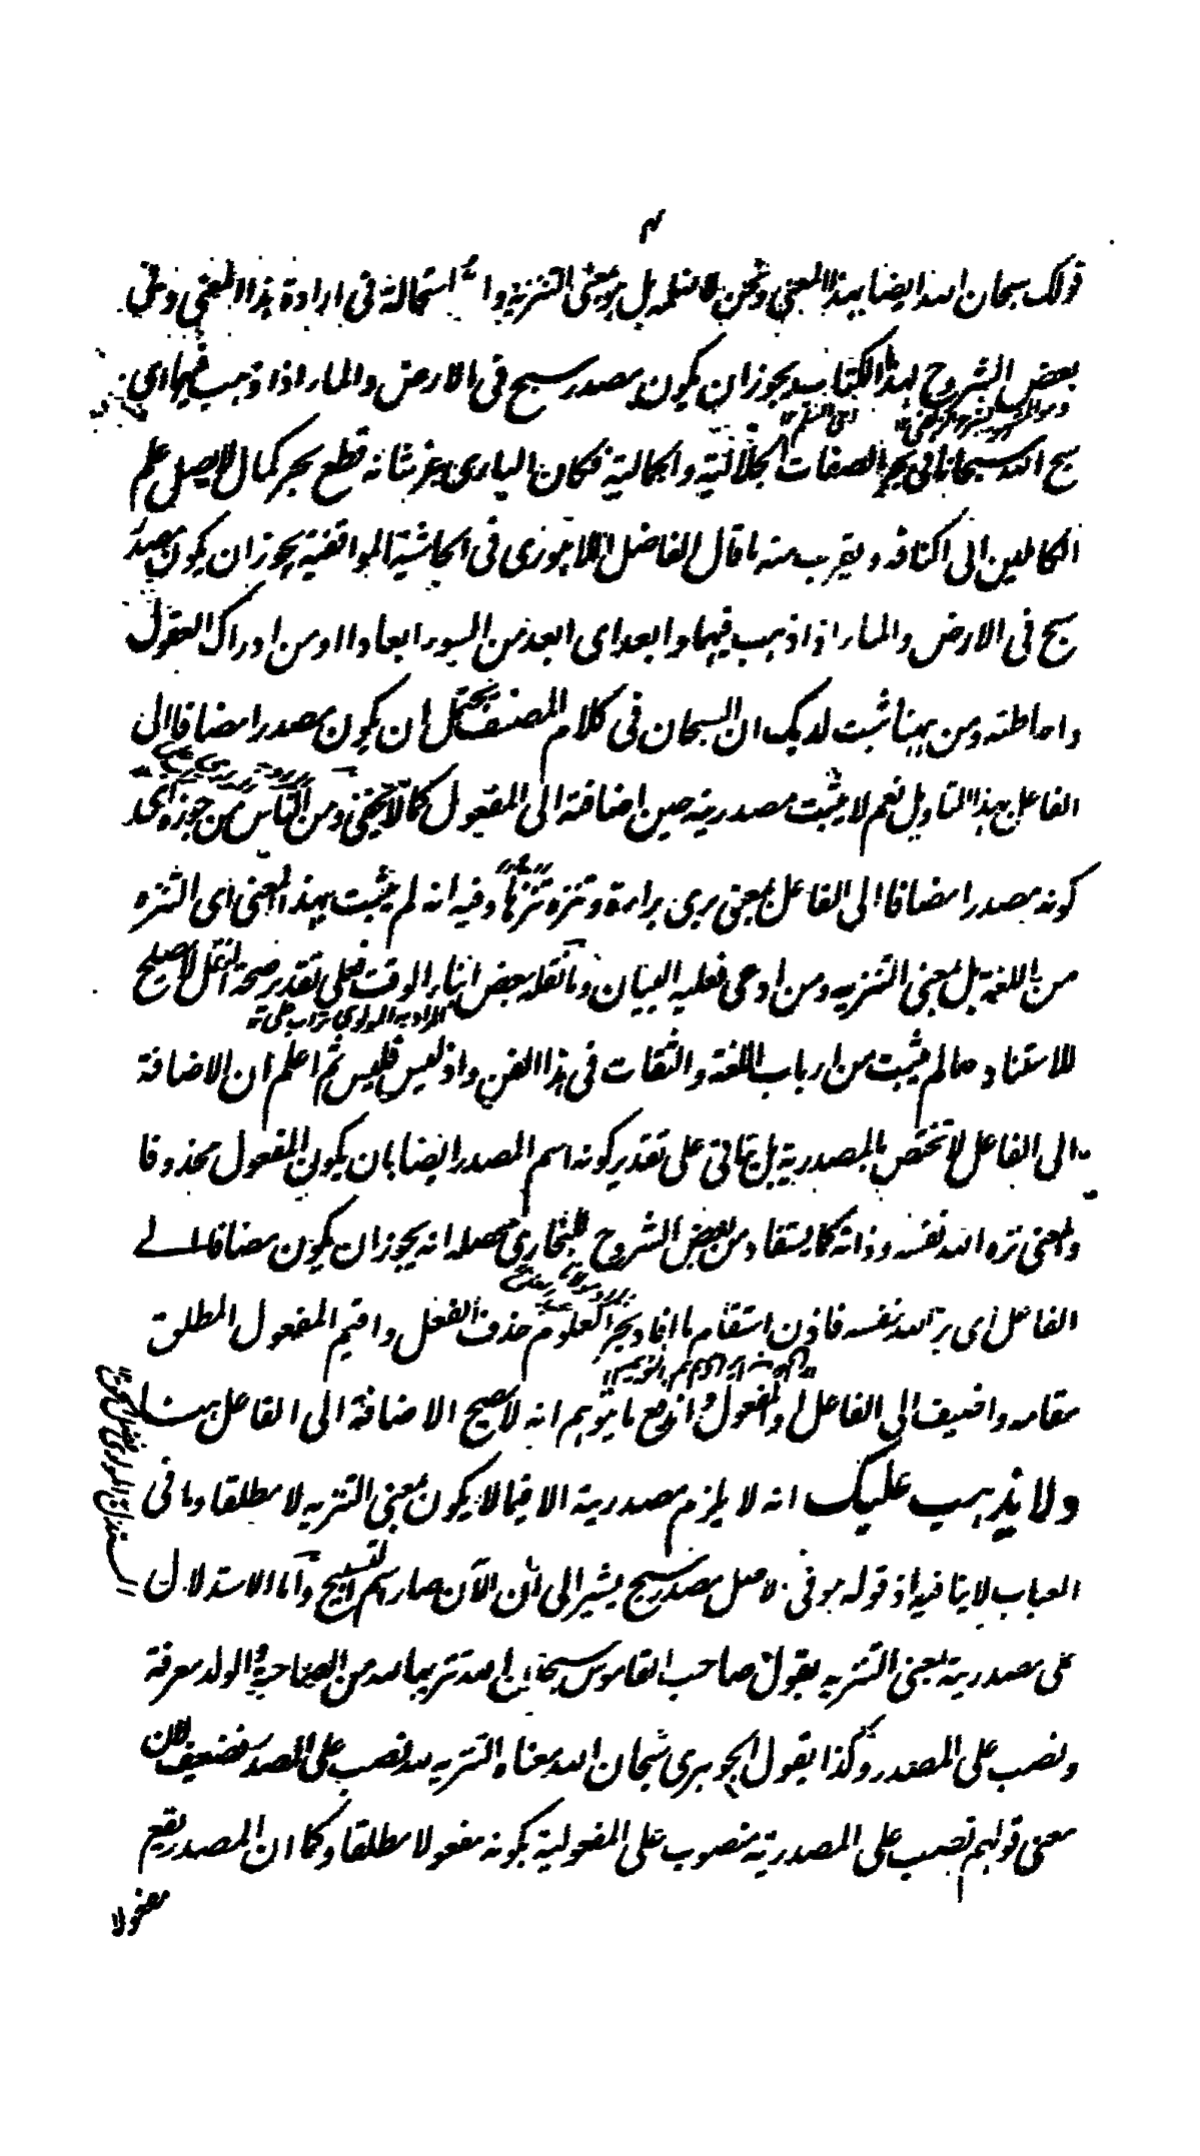 ٤
قولك سبحان الله ايضا بهذا المعنى ونحن لا نعلمه بل هو بمعنى التنزيه وا استحالة فى ارادة هذا المعنى وفى
بعض الشروح لهذا الكتاب يجوز ان يكون مصدر سبح فى الارض والماء اذا ذهب فيهما اى
سبح الله سبحانا فى بحر الصفات الجلالية والجمالية فكان البارى عز شانه قطع بحر كمال لا يصل علم
الكاملين الى اكنافه ويقرب منه ما قال الفاضل اللاهورى فى الحاشية المواقفية يجوز ان يكون مصدر
سبح فى الارض والماء اذا ذهب فيهما وابعد اى ابعد من السوء ابعادا او من ادراك العقول
واحاطته ومن ههنا ثبت لديك ان السبحان فى كلام المصنف يحتمل ان يكون مصدرا مضافا الى
الفاعل بهذا التاويل نعم لا يثبت مصدريته حين اضافة الى المفعول كما لا يخفى ومن الناس من جوزه اى
كونه مصدرا مضافا الى الفاعل بمعنى برى براءة وتنزه تنزها وفيه انه لم يثبت بهذا المعنى اى التنزه
من اللغة بل بمعنى التنزيه ومن ادعى فعليه البيان وما نقله بعض ابناء الوقت فعلى تقدير صحة النقل لا يصلح
المراد به المولوى تراب على
للاستناد ما لم يثبت من ارباب اللغة والثقات فى هذا الفن واذ ليس فليس ثم اعلم ان الاضافة
الى الفاعل لا تختص بالمصدرية بل تاتى على تقدير كونه اسم المصدر ايضا بان يكون المفعول محذوفا
والمعنى نزه الله نفسه وذاته كما يستفاد من بعض الشروح للبخارى محصله انه يجوز ان يكون مضافا الى
الفاعل اى نزه الله نفسه فاذن استقام ما افاد بحر العلوم حذف الفعل واقيم المفعول المطلق
مقامه واضيف الى الفاعل او المفعول واندفع ما توهم انه لا يصح الاضافة الى الفاعل ههنا
ولا يذهب عليك انه لا يلزم مصدرية الا فيما لا يكون بمعنى التنزيه لا مطلقا وما فى
العباب لا ينافيه اذ قوله هو فى الاصل مصدر سبح يشير الى ان الآن صار اسم التسبيح واما الاستدلال
على مصدريته بمعنى التنزيه بقول صاحب القاموس سبحان الله تنزيها لله من الصاحبة والولد معرفة
ونصب على المصدر وكذا بقول الجوهرى سبحان الله معناه التنزيه لله نصب على المصدر فضعيف لان
معنى قولهم نصب على المصدرية منصوب على المفعولية بكونه مفعولا مطلقا وكما ان المصدر يقع
مفعولا